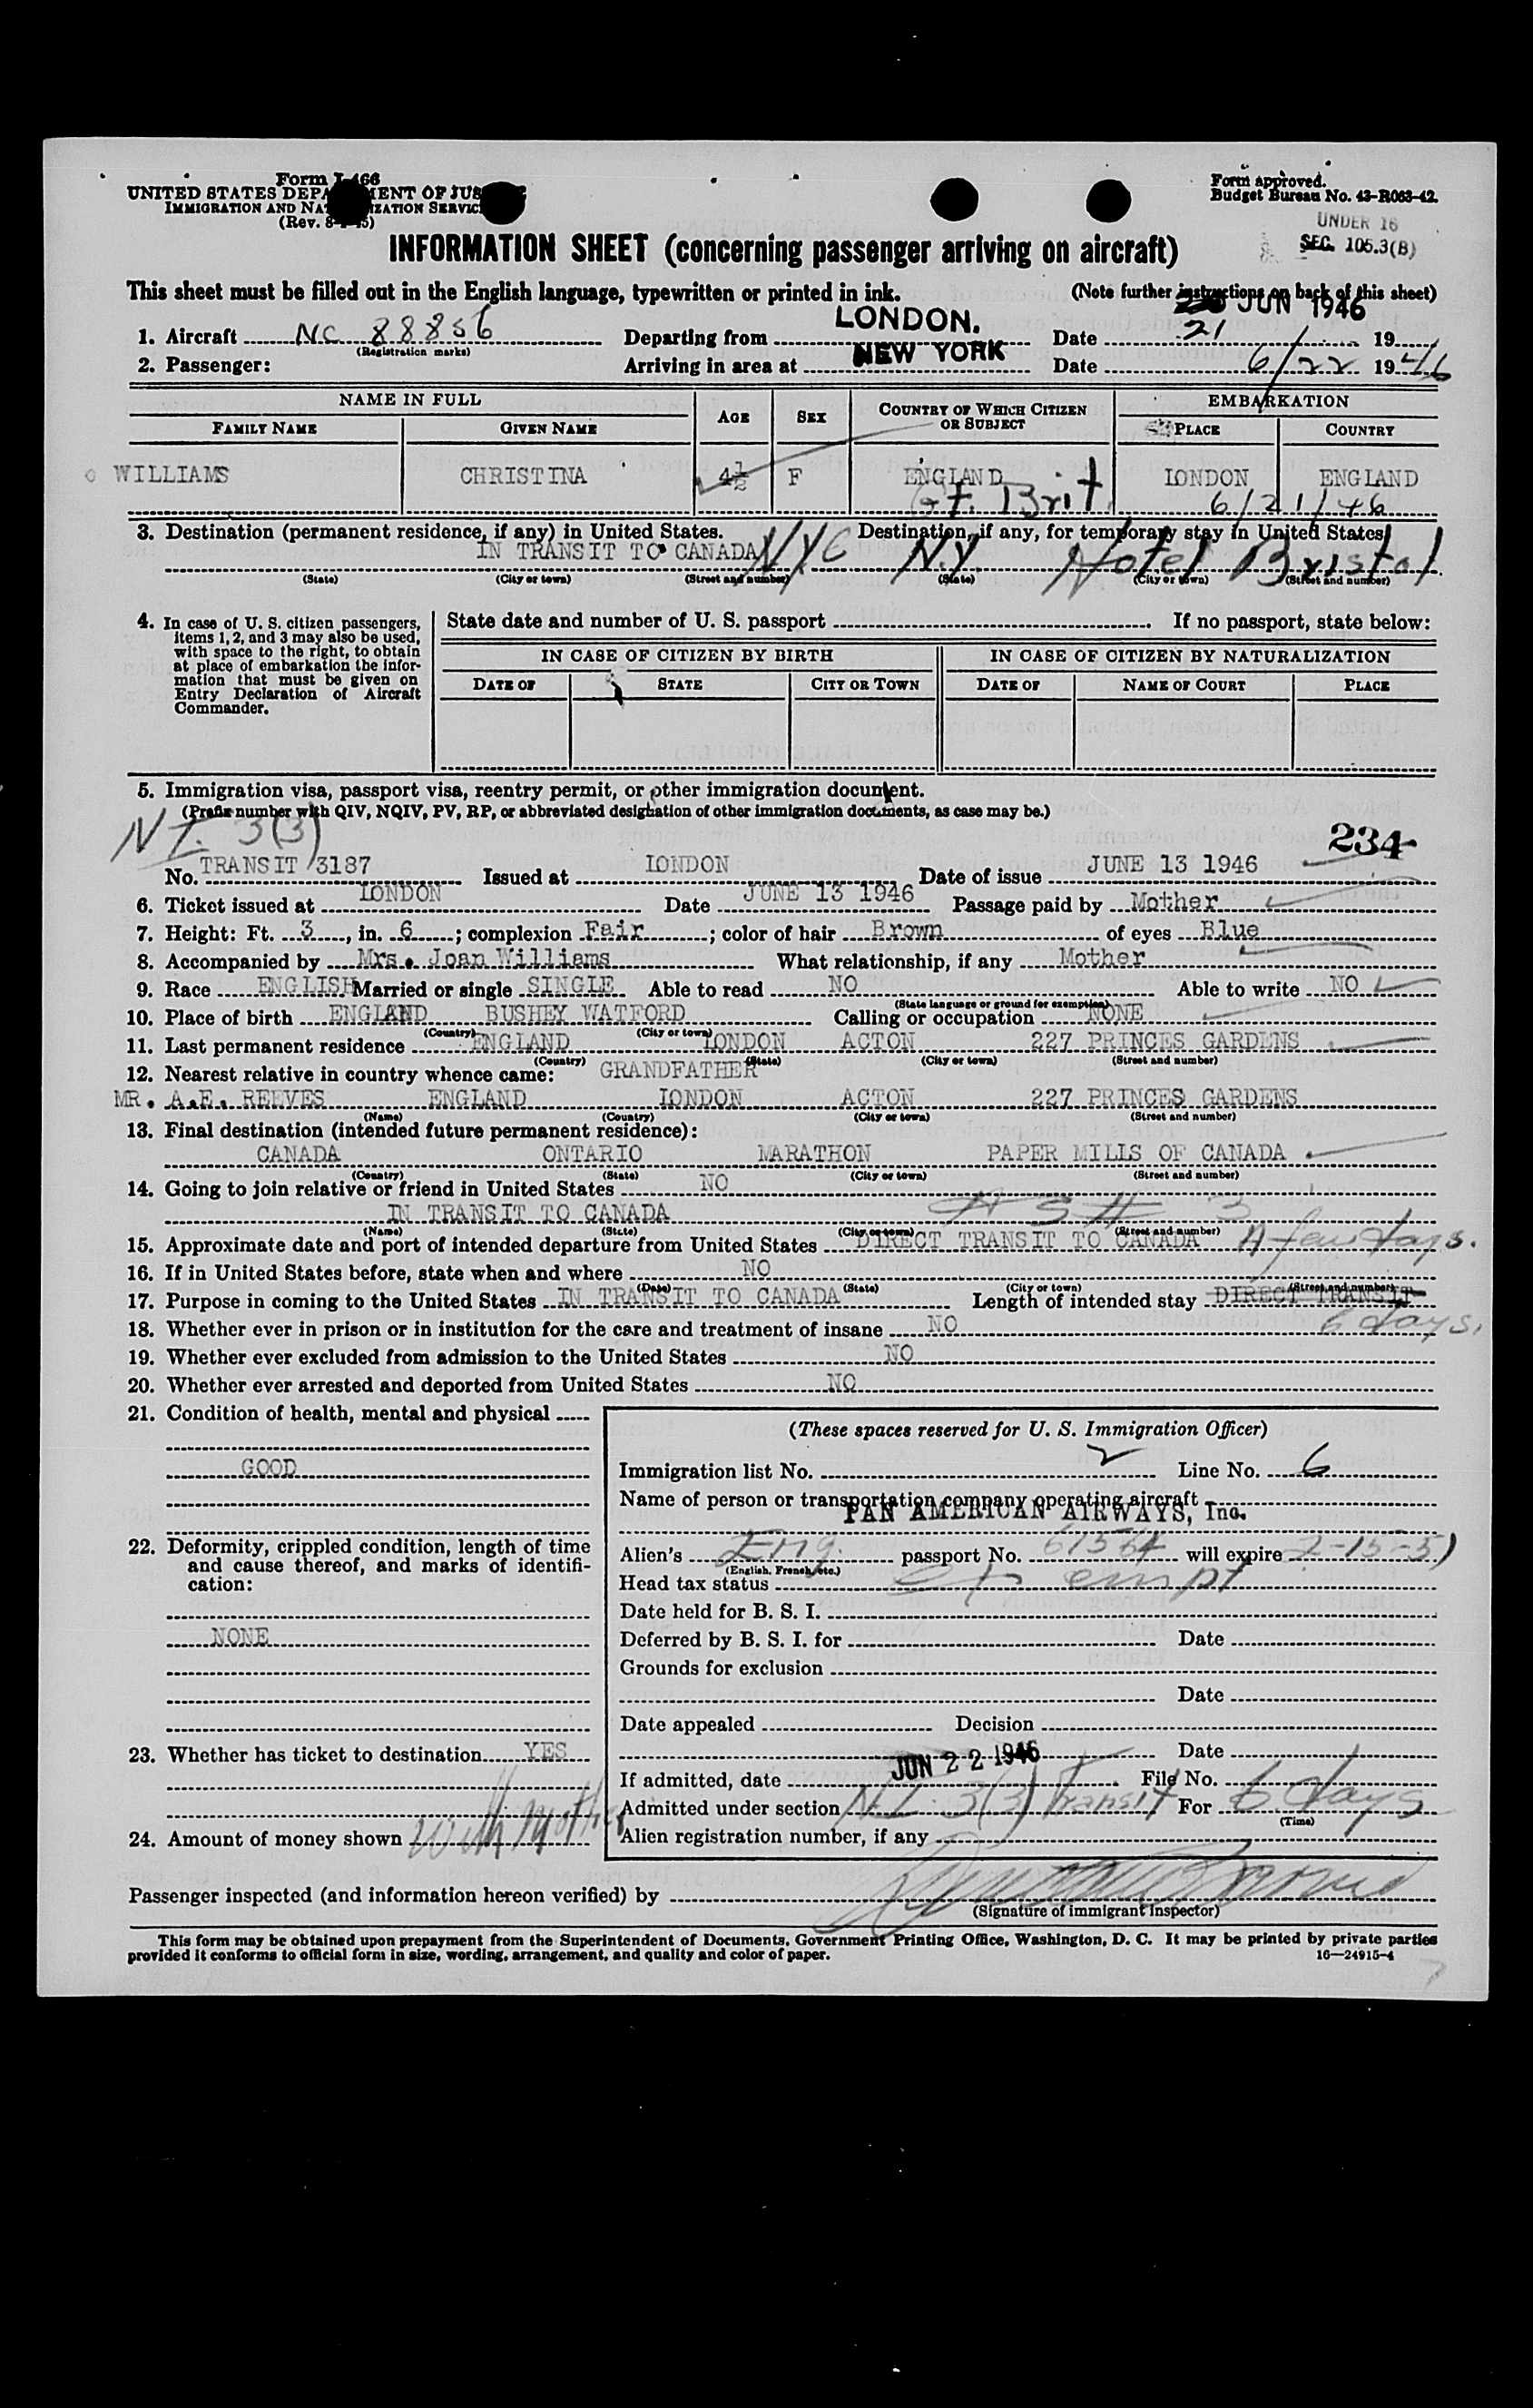 Form I-466
UNITED STATES DEPARTMENT OF JUSTICE
IMMIGRATION AND NATURALIZATION SERVICE
(Rev. 8-1-45)
Form approved.
Budget Bureau No. 43-R063-42.
UNDER 16
SEC. 105.3(B)
INFORMATION SHEET (concerning passenger arriving on aircraft)
This sheet must be filled out in the English language, typewritten or printed in ink. (Note further instructions on back of this sheet)
JUN 1946
1. Aircraft NC 88856 Departing from LONDON. Date 21 19
(Registration marks)
2. Passenger: Arriving in area at NEW YORK Date 6/22 1946
NAME IN FULL AGE SEX COUNTRY OF WHICH CITIZEN OR SUBJECT EMBARKATION
FAMILY NAME GIVEN NAME PLACE COUNTRY
WILLIAMS CHRISTINA 4½ F ENGLAND LONDON ENGLAND
Gt. Brit. 6/21/46
3. Destination (permanent residence, if any) in United States. Destination, if any, for temporary stay in United States
IN TRANSIT TO CANADA NYC N.Y. Hotel Bristol
(State) (City or town) (Street and number) (State) (City or town) (Street and number)
4. In case of U. S. citizen passengers, items 1, 2, and 3 may also be used, with space to the right, to obtain at place of embarkation the information that must be given on Entry Declaration of Aircraft Commander.
State date and number of U. S. passport If no passport, state below:
IN CASE OF CITIZEN BY BIRTH IN CASE OF CITIZEN BY NATURALIZATION
DATE OF STATE CITY OR TOWN DATE OF NAME OF COURT PLACE
5. Immigration visa, passport visa, reentry permit, or other immigration document.
(Prefix number with QIV, NQIV, PV, RP, or abbreviated designation of other immigration documents, as case may be.)
N I. 3(3) 234
No. TRANSIT 3187 Issued at LONDON Date of issue JUNE 13 1946
6. Ticket issued at LONDON Date JUNE 13 1946 Passage paid by Mother
7. Height: Ft. 3, in. 6; complexion Fair; color of hair Brown of eyes Blue
8. Accompanied by Mrs. Joan Williams What relationship, if any Mother
9. Race ENGLISH Married or single SINGLE Able to read NO Able to write NO
(State language or ground for exemption)
10. Place of birth ENGLAND BUSHEY WATFORD Calling or occupation NONE
(Country) (City or town)
11. Last permanent residence ENGLAND LONDON ACTON 227 PRINCES GARDENS
(Country) (State) (City or town) (Street and number)
12. Nearest relative in country whence came: GRANDFATHER
MR. A.E. REEVES ENGLAND LONDON ACTON 227 PRINCES GARDENS
(Name) (Country) (City or town) (Street and number)
13. Final destination (intended future permanent residence):
CANADA ONTARIO MARATHON PAPER MILLS OF CANADA.
(Country) (State) (City or town) (Street and number)
14. Going to join relative or friend in United States NO
IN TRANSIT TO CANADA
(Name) (State) (City or town) (Street and number)
15. Approximate date and port of intended departure from United States DIRECT TRANSIT TO CANADA A few days.
16. If in United States before, state when and where NO
(Date) (State) (City or town) (Street and number)
17. Purpose in coming to the United States IN TRANSIT TO CANADA Length of intended stay DIRECT TRANSIT
6 days.
18. Whether ever in prison or in institution for the care and treatment of insane NO
19. Whether ever excluded from admission to the United States NO
20. Whether ever arrested and deported from United States NO
21. Condition of health, mental and physical
GOOD
22. Deformity, crippled condition, length of time and cause thereof, and marks of identification:
NONE
23. Whether has ticket to destination YES
24. Amount of money shown with Mother
(These spaces reserved for U. S. Immigration Officer)
Immigration list No. 2 Line No. 6
Name of person or transportation company operating aircraft
PAN AMERICAN AIRWAYS, Inc.
Alien's Eng. passport No. 61564 will expire 2-15-51
(English, French, etc.)
Head tax status exempt
Date held for B. S. I.
Deferred by B. S. I. for Date
Grounds for exclusion
Date
Date appealed Decision
Date
If admitted, date JUN 22 1946 File No.
Admitted under section N.I. 3(3) transit For 6 days
(Time)
Alien registration number, if any
Passenger inspected (and information hereon verified) by
(Signature of immigrant inspector)
This form may be obtained upon prepayment from the Superintendent of Documents, Government Printing Office, Washington, D. C. It may be printed by private parties
provided it conforms to official form in size, wording, arrangement, and quality and color of paper. 16—24915-4